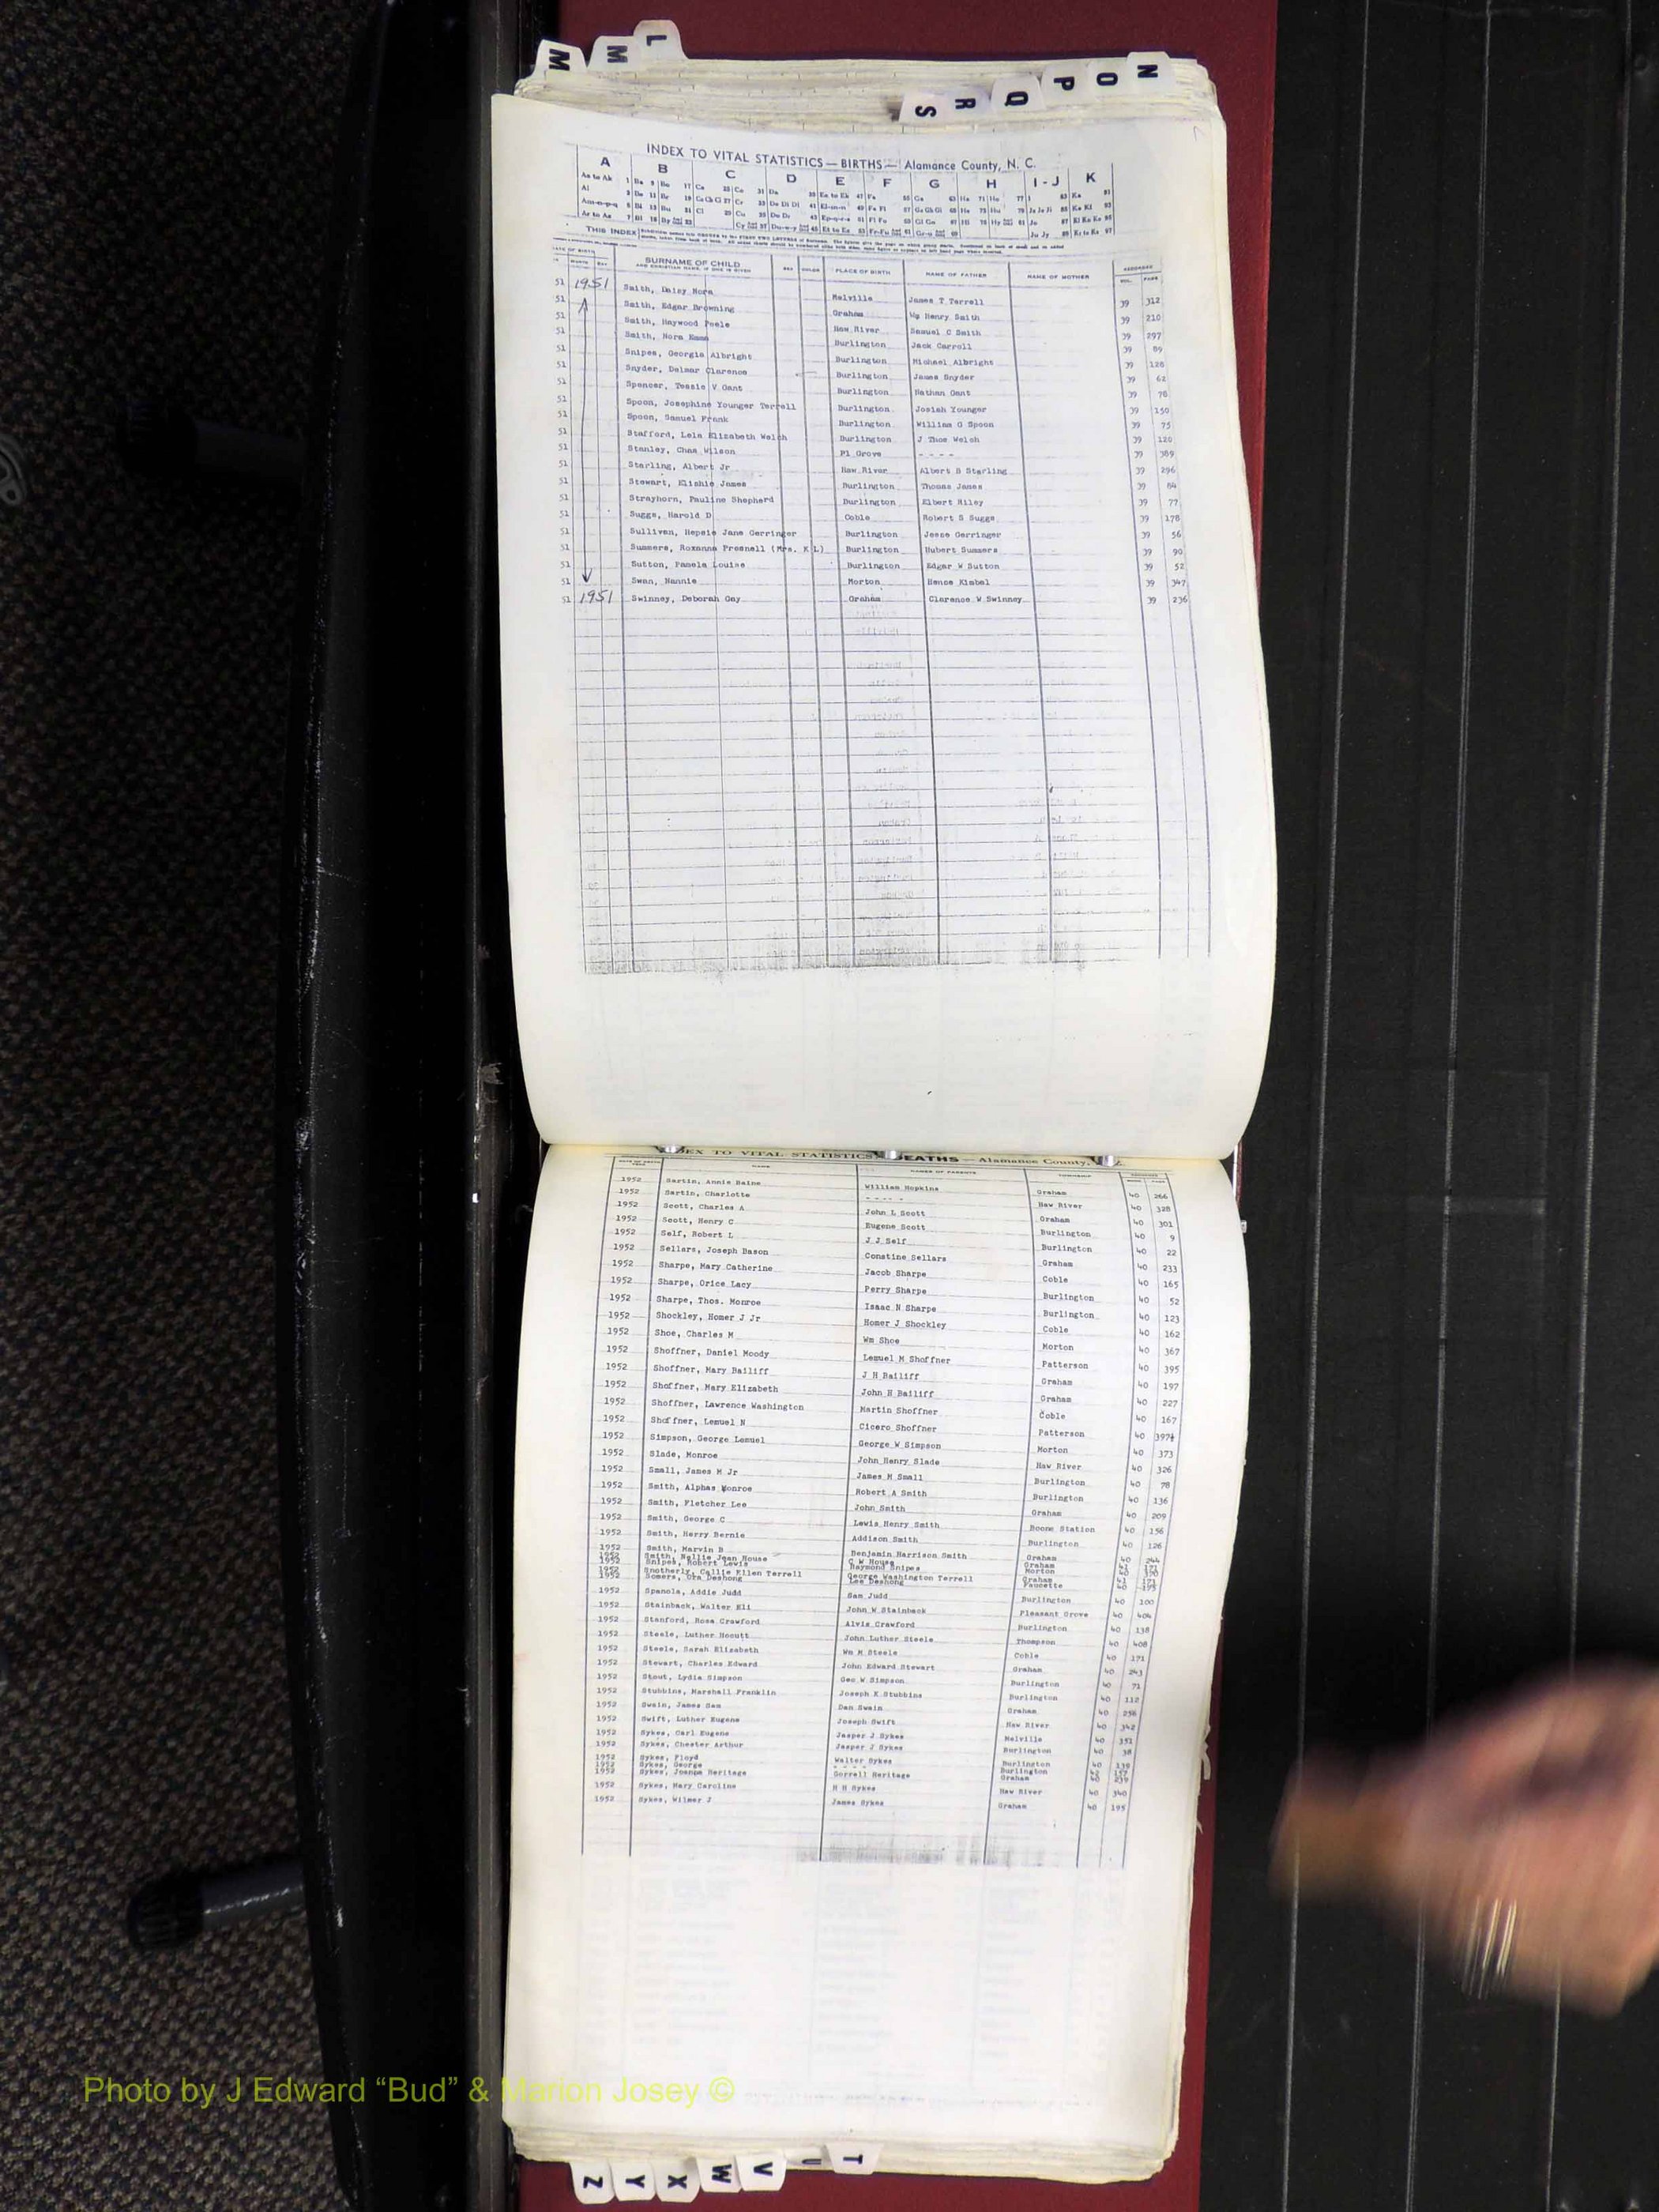 L
M
M
N
O
P
Q
R
S
INDEX TO VITAL STATISTICS — BIRTHS — Alamance County, N. C.
A B C D E F G H I - J K
THIS INDEX
SURNAME OF CHILD PLACE OF BIRTH NAME OF FATHER NAME OF MOTHER
51 1951 Smith, Daisy Nora Melville James T Terrell 39 312
51 Smith, Edgar Browning Graham Wm Henry Smith 39 210
51 Smith, Haywood Poele Haw River Samuel C Smith 39 297
51 Smith, Nora Emma Burlington Jack Carroll 39 89
51 Snipes, Georgia Albright Burlington Michael Albright 39 128
51 Snyder, Delmar Clarence Burlington James Snyder 39 62
51 Spencer, Tessie V Gant Burlington Nathan Gant 39 78
51 Spoon, Josephine Younger Terrell Burlington Josiah Younger 39 150
51 Spoon, Samuel Frank Burlington William G Spoon 39 75
51 Stafford, Lela Elizabeth Welch Burlington J Thos Welch 39 120
51 Stanley, Chas Wilson Pl Grove - - - - 39 389
51 Starling, Albert Jr Haw River Albert B Starling 39 296
51 Stewart, Elishie James Burlington Thomas James 39 84
51 Strayhorn, Pauline Shepherd Burlington Elbert Riley 39 77
51 Suggs, Harold D Coble Robert S Suggs 39 178
51 Sullivan, Hepsie Jane Gerringer Burlington Jesse Gerringer 39 56
51 Summers, Roxanna Presnell (Mrs. K L) Burlington Hubert Summers 39 90
51 Sutton, Pamela Louise Burlington Edgar W Sutton 39 52
51 Swan, Nannie Morton Hence Kimbel 39 347
51 1951 Swinney, Deborah Gay Graham Clarence W Swinney 39 236
INDEX TO VITAL STATISTICS DEATHS — Alamance County,
NAME NAMES OF PARENTS TOWNSHIP
1952 Sartin, Annie Baine William Hopkins Graham 40 266
1952 Sartin, Charlotte - - - - - Haw River 40 328
1952 Scott, Charles A John L Scott Graham 40 301
1952 Scott, Henry C Eugene Scott Burlington 40 9
1952 Self, Robert L J J Self Burlington 40 22
1952 Sellars, Joseph Bason Constine Sellars Graham 40 233
1952 Sharpe, Mary Catherine Jacob Sharpe Coble 40 165
1952 Sharpe, Orice Lacy Perry Sharpe Burlington 40 52
1952 Sharpe, Thos. Monroe Isaac N Sharpe Burlington 40 123
1952 Shockley, Homer J Jr Homer J Shockley Coble 40 162
1952 Shoe, Charles M Wm Shoe Morton 40 367
1952 Shoffner, Daniel Moody Lemuel M Shoffner Patterson 40 395
1952 Shoffner, Mary Bailiff J H Bailiff Graham 40 197
1952 Shoffner, Mary Elizabeth John H Bailiff Graham 40 227
1952 Shoffner, Lawrence Washington Martin Shoffner Coble 40 167
1952 Shoffner, Lemuel N Cicero Shoffner Patterson 40 397½
1952 Simpson, George Lemuel George W Simpson Morton 40 373
1952 Slade, Monroe John Henry Slade Haw River 40 326
1952 Small, James M Jr James M Small Burlington 40 78
1952 Smith, Alphas Monroe Robert A Smith Burlington 40 136
1952 Smith, Fletcher Lee John Smith Graham 40 209
1952 Smith, George C Lewis Henry Smith Boone Station 40 156
1952 Smith, Harry Bernie Addison Smith Burlington 40 126
1952 Smith, Marvin B Benjamin Harrison Smith Graham 40 244
1952 Smith, Nellie Jean House C W House Graham 41 171
1952 Snipes, Robert Lewis Raymond Snipes Morton 40
1952 Snotherly, Callie Ellen Terrell George Washington Terrell Graham 41
1952 Somers, Ora Deshong Lee Deshong Faucette 40
1952 Spanola, Addie Judd Sam Judd Burlington 40 100
1952 Stainback, Walter Eli John W Stainback Pleasant Grove 40 404
1952 Stanford, Rosa Crawford Alvis Crawford Burlington 40 138
1952 Steele, Luther Hocutt John Luther Steele Thompson 40 408
1952 Steele, Sarah Elizabeth Wm M Steele Coble 40 171
1952 Stewart, Charles Edward John Edward Stewart Graham 40 243
1952 Stout, Lydia Simpson Geo W Simpson Burlington 40 71
1952 Stubbins, Marshall Franklin Joseph K Stubbins Burlington 40 112
1952 Swain, James Sam Dan Swain Graham 40 256
1952 Swift, Luther Eugene Joseph Swift Haw River 40 342
1952 Sykes, Carl Eugene Jasper J Sykes Melville 40 351
1952 Sykes, Chester Arthur Jasper J Sykes Burlington 40 38
1952 Sykes, Floyd Walter Sykes Burlington 40 139
1952 Sykes, George - - - - Burlington 42 157
1952 Sykes, Joanna Heritage Gorrell Heritage Graham 40 239
1952 Sykes, Mary Caroline H H Sykes Haw River 40 340
1952 Sykes, Wilmer J James Sykes Graham 40 195
Photo by J Edward “Bud” & Marion Josey ©
T
U
V
W
X
Y
Z